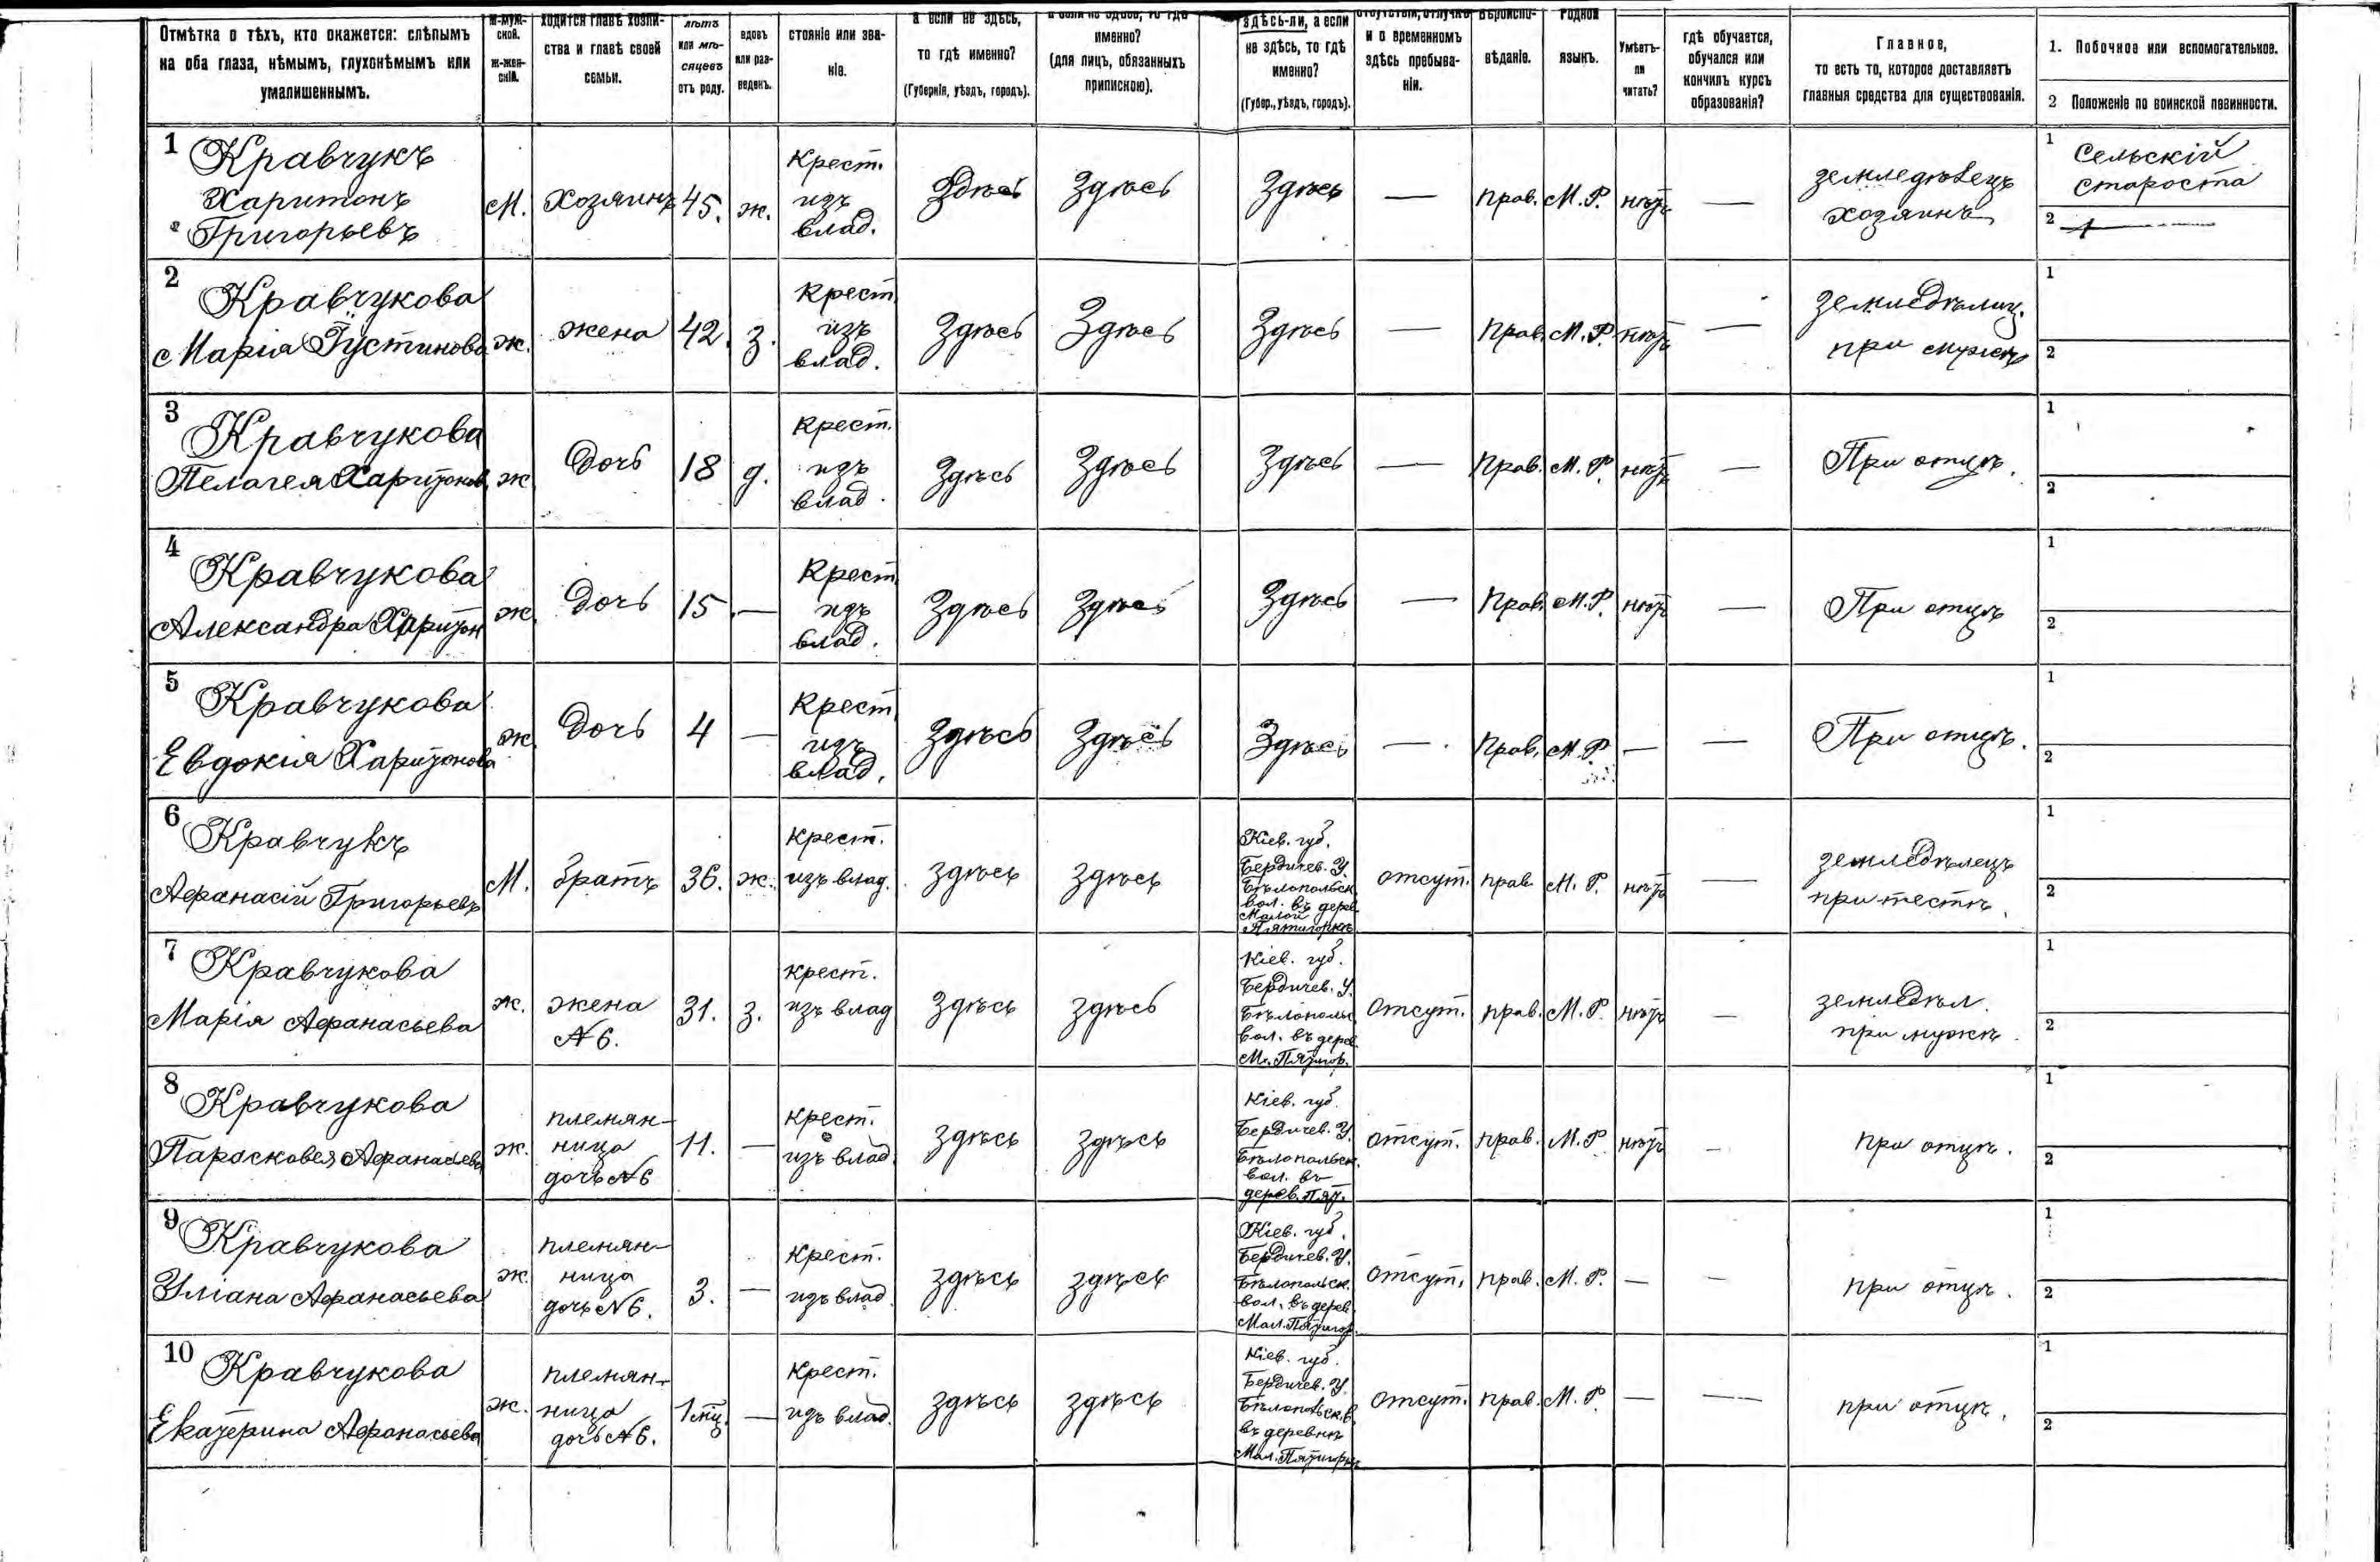 Отмѣтка о тѣхъ, кто окажется: слѣпымъ
на оба глаза, нѣмымъ, глухонѣмымъ или
умалишеннымъ.
м-муж-
ской.
ж-жен-
скій.
ходится главѣ хозяй-
ства и главѣ своей
семьи.
лѣтъ
или мѣ-
сяцевъ
отъ роду.
вдовъ
или раз-
веденъ.
стояніе или зва-
ніе.
а если не здѣсь,
то гдѣ именно?
(Губернія, уѣздъ, городъ).
а если не здѣсь, то гдѣ
именно?
(для лицъ, обязанныхъ
припискою).
здѣсь-ли, а если
не здѣсь, то гдѣ
именно?
(Губер., уѣздъ, городъ).
отсутствіи, отлучкѣ
и о временномъ
здѣсь пребыва-
ніи.
Вѣроиспо-
вѣданіе.
Родной
языкъ.
Умѣетъ-
ли
читать?
гдѣ обучается,
обучался или
кончилъ курсъ
образованія?
Главное,
то есть то, которое доставляетъ
главныя средства для существованія.
1. Побочное или вспомогательное.
2 Положеніе по воинской повинности.
1
Кравчукъ
Харитонъ
Григорьевъ
М.
Хозяинъ
45.
ж.
Крест.
изъ
влад.
Здѣсь
Здѣсь
Здѣсь
—
прав.
М. Р.
нѣтъ
—
земледѣлецъ
хозяинъ
1
Сельскій
староста
2
2
Кравчукова
Марія Густинова
ж.
жена
42.
з.
Крест
изъ
влад.
Здѣсь
Здѣсь
Здѣсь
—
Прав.
М. Р.
нѣтъ
—
земледѣлиц.
при мужѣ
1
2
3
Кравчукова
Пелагея Харитонов.
ж
Дочь
18
д.
Крест.
изъ
влад.
Здѣсь
Здѣсь
Здѣсь
—
Прав.
М. Р.
нѣтъ
—
При отцѣ.
1
2
4
Кравчукова
Александра Харитон
ж.
Дочь
15
—
Крест
изъ
влад.
Здѣсь
Здѣсь
Здѣсь
—
Прав.
М. Р.
нѣтъ
—
При отцѣ
1
2
5
Кравчукова
Евдокія Харитонова
ж.
Дочь
4
—
Крест
изъ
влад.
Здѣсь
Здѣсь
Здѣсь
—
Прав.
М. Р.
—
—
При отцѣ.
1
2
6
Кравчукъ
Афанасій Григорьевъ
М.
братъ
36.
ж.
Крест.
изъ влад.
здѣсь
здѣсь
Кіев. губ.
Бердичев. У.
Бѣлопольск.
вол. въ дерев.
Малой
Пятигоркѣ
отсут.
прав.
М. Р.
нѣтъ
—
земледѣлецъ
при тестѣ.
1
2
7
Кравчукова
Марія Афанасьева
ж.
жена
№ 6.
31.
з.
крест.
изъ влад
здѣсь
здѣсь
Кіев. губ.
Бердичев. У.
Бѣлополь.
вол. въ дерев.
М. Пятигор.
отсут.
прав.
М. Р.
нѣтъ
—
земледѣл.
при мужѣ.
1
2
8
Кравчукова
Парасковея Афанасьева
ж.
племян-
ница
дочь № 6
11.
—
крест.
изъ влад
здѣсь
здѣсь
Кіев. губ.
Бердичев. У.
Бѣлопольск.
вол. въ
дерев. Пят.
отсут.
прав.
М. Р
нѣтъ
—
при отцѣ.
1
2
9
Кравчукова
Уліана Афанасьева
ж.
племян-
ница
дочь № 6.
3.
—
Крест.
изъ влад.
здѣсь
здѣсь
Кіев. губ.
Бердичев. У.
Бѣлопольск.
вол. въ дерев.
Мал. Пятигор.
отсут.
прав.
М. Р.
—
—
при отцѣ.
1
2
10
Кравчукова
Екатерина Афанасьева
ж.
племян-
ница
дочь № 6.
1 мц.
—
Крест.
изъ влад.
здѣсь
здѣсь
Кіев. губ.
Бердичев. У.
Бѣлопольск. в.
въ деревнѣ
Мал. Пятигоркѣ
отсут.
прав.
М. Р.
—
—
при отцѣ.
1
2